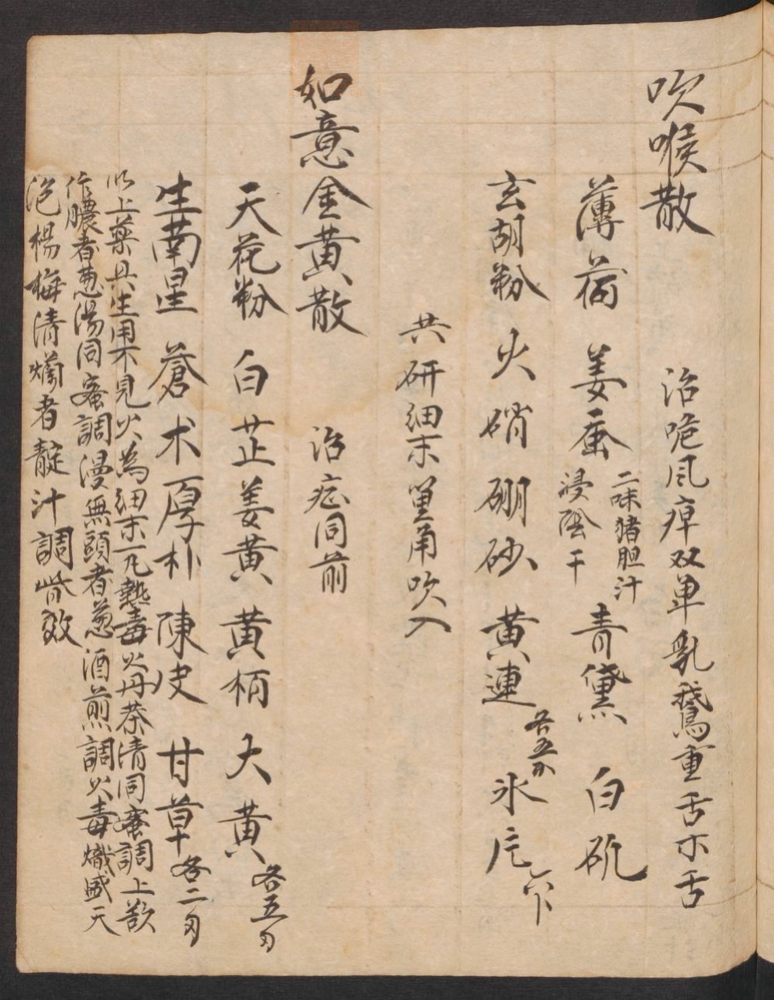 吹喉散
治咙風痺双单乳鵝重舌木舌
薄荷 姜蚕 二味猪胆汁浸陰干 青黛 白矾
玄胡粉 火硝 硼砂 黄連 各五分 氷片
共研細末筆角吹入
如意金黄散
治症同前
天花粉 白芷 姜黄 黄柄 大黄 各五刄
生南星 蒼术 厚朴 陳皮 甘草 各二刄
以上藥具生用不見火為細末一凡熱毒火丹茶清同蜜調上欲
作膿者葱湯同蜜調漫無頭者葱酒煎調火毒熾盛天
泡楊梅清爛者靛汁調皆效